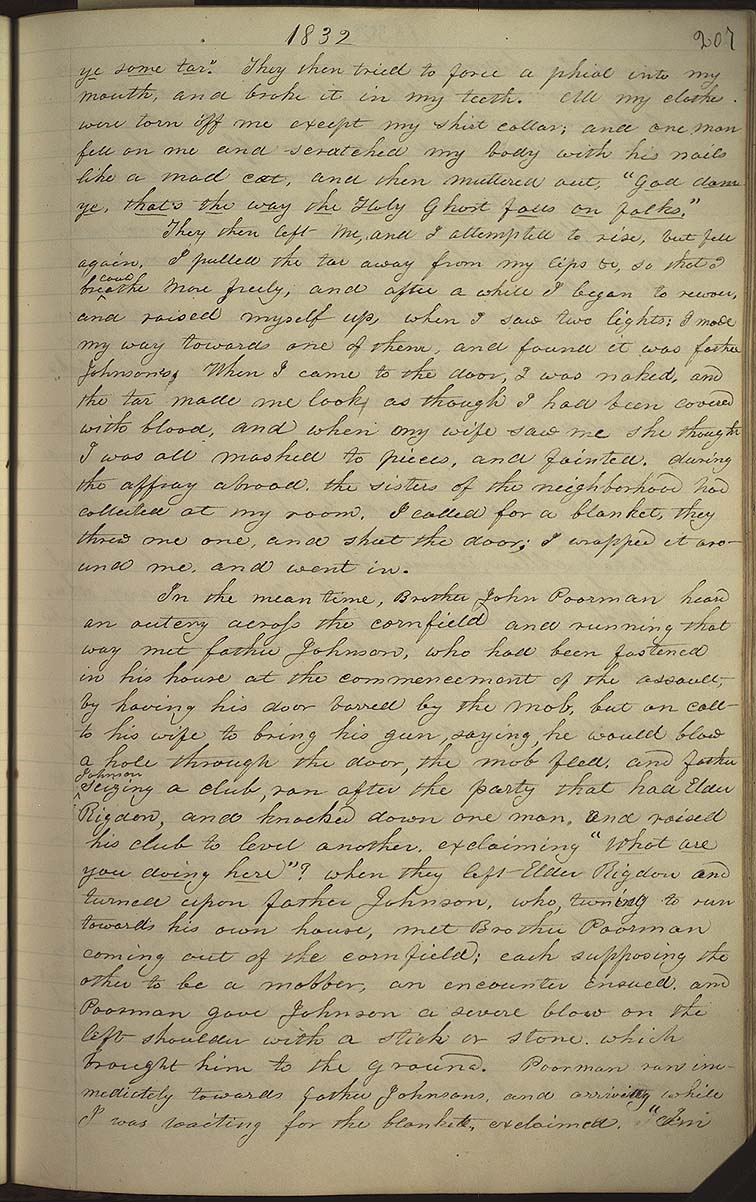 1832
207
ye some tar". They then tried to force a phial into my
mouth, and broke it in my teeth. All my clothes
were torn off me except my shirt collar; and one man
fell on me and scratched my body with his nails
like a mad cat, and then muttered out, "God dam
ye, that's the way the Holy Ghost falls on folks."
They then left me, and I attempted to rise, but fell
again. I pulled the tar away from my lips &c, so that I
could
breathe more freely, and after a while I began to recover,
and raised myself up, when I saw two lights; I made
my way towards one of them, and found it was father
Johnson's, When I came to the door, I was naked, and
the tar made me look, as though I had been covered
with blood, and when my wife saw me she thought
I was all mashed to pieces, and fainted. during
the affray abroad, the sisters of the neighborhood had
collected at my room. I called for a blanket, they
threw me one, and shut the door; I wrapped it aro-
und me, and went in.
In the mean time, Brother John Poorman heard
an outcry across the cornfield and running that
way met father Johnson, who had been fastened
in his house at the commencement of the assault,
by having his door barred by the mob, but on call-
to his wife to bring his gun, saying, he would blow
a hole through the door, the mob fled, and father
Johnson
seizing a club, ran after the party that had Elder
Rigdon, and knocked down one man, and raised
his club to level another, exclaiming "What are
you doing here"? when they left Elder Rigdon and
turned upon father Johnson, who, turning to run
towards his own house, met Brother Poorman
coming out of the cornfield; each supposing the
other to be a mobber, an encounter ensued, and
Poorman gave Johnson a severe blow on the
left shoulder with a stick or stone, which
brought him to the ground. Poorman ran im-
mediately towards father Johnsons, and arriving while
I was waiting for the blanket, exclaimed, "I'm